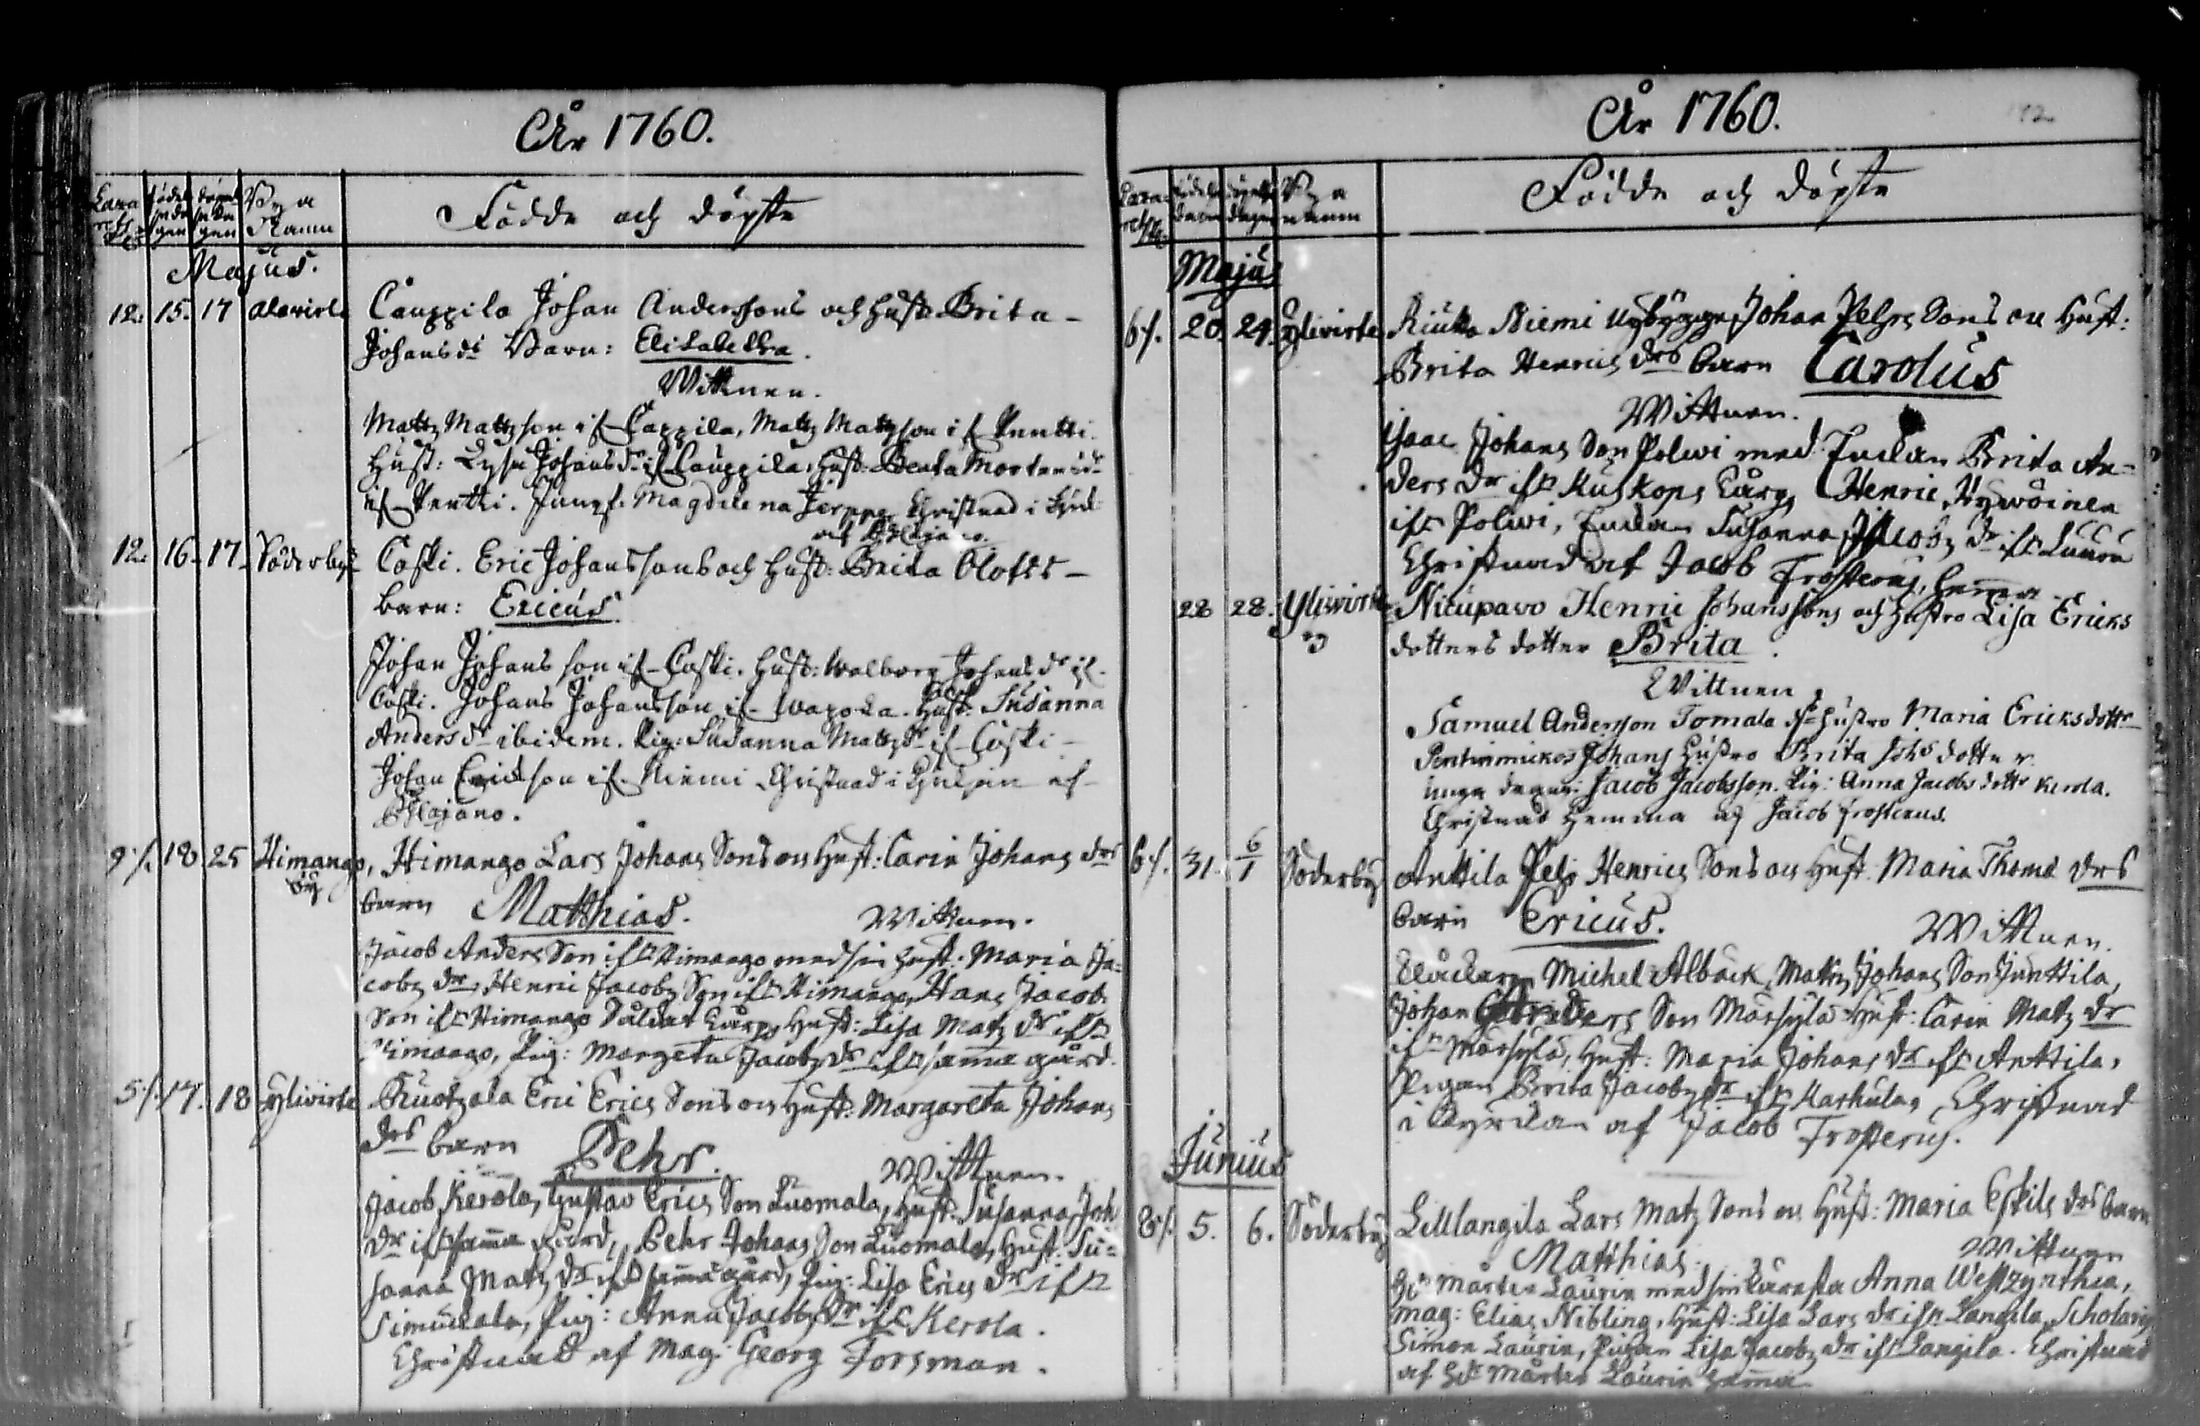 År 1760.
Födde och döpte
Bya Namn
Majus.
12. 15. 17 Alavirte Cauppila Johan Anderssons och hust. Brita
Johansdr Barn: Elisabetha.
Wittnen.
Matts Mattsson if. Cappila, Matts Mattsson if. Pentti.
Hust: Lysa Johansdr if. Cauppila, hust. Beata Mortensdr
if. Pentti. Jungf. Magdelena Jerppe Christnad i
af Calajano.
12. 16. 17. Söderby Coski. Eric Johanssons och hust: Brita Olofsdr
barn: Ericus.
Johan Johansson if. Coski. hust: Walborg Johansdr if.
Coski. Johans Johansson if. hust. Susanna
Andersdr ibidem. Pig: Susanna Mattsdr if. Coski
Johan Erickson if. Niemi Christnad i af
Calajano.
9/. 18 25 Himango by, Himango Lars Johans Sons och Hust: Carin Johans drs
barn Matthias. Wittnen.
Jacob Anders Son ifr. Himango med sin hust. Maria Ja=
cobs dr, Henric Jacobs Son ifr. Himango, Hans Jacobs
Son ifr. Himango Hust: Lisa Matz dr ifr.
Himango, Pig: Margeta Jacobs dr ifr. samma gård.
5/. 17. 18 Ylivirte Ruotzala Eric Erics Sons och Hust: Margareta Johans
drs barn Pehr. Wittnen.
Jacob Kerola, Gustav Erics Son Luomala, Hust. Susanna Joh
dr ifr. samma gård, Pehr Johans Son Luomala, Hust. Su=
sanna Matz dr ifr. samma gård, Pig: Lisa Erics dr ifr.
Simuckala, Pig: Anna Jacobs dr ifr. Kerola.
Christnad af Mag: Georg Forsman.
År 1760. 12
Födde och döpte
Bya namn
Majus
6/. 20. 24. Ylivirte Niemi Nybygga Johan Pehrs Sons och Hust:
Brita Henrics drs barn Carolus
Wittnen.
Isaac Johans Son Polwi med Enkan Brita An=
ders dr ifr. Henric Hywöinen
ifr. Polwi, Enkan Susanna Jacobs dr ifr.
Christnad af Jacob Frosterus, hemma.
28 28. Ylivirte by Nicupavo Henric Johanssons och hustro Lisa Ericks
dotters dotter Brita.
Wittnen
Samuel Anderson Tomala dr hustro Maria Ericksdottr
Johans hustro Brita Johs dotter.
unga Jacob Jacobsson. Pig: Anna Jacobs dottr Kerola.
Christnad hemma af Jacob Frosterus.
6/. 31. 6/1 Söderby Anttila Pehr Henrics Sons och Hust. Maria Thoms drs
barn Ericus. Wittnen.
Klåckaren Michel Alback, Matts Johans Son Junttila,
Johan Anders Son Marsylä Hust: Carin Matz dr
ifr. Marsylä, Hust: Maria Johans dr ifr. Anttila,
Pigan Brita Jacobs dr ifr. Karhula, Christnad
i Kyrckan af Jacob Frosterus.
Junius
8/. 5. 6. Söderby Lilllangila Lars Matz Sons och Hust: Maria Eskils drs barn
Matthias. Wittnen
Hr Mårten Laurin med sin käresta Anna Westzynthia,
Mag: Elias Nibling, Hust: Lisa Lars dr ifr. Langila, Scholaris
Simon Laurin, Pigan Lisa Jacobs dr ifr. Langila. Christnad
af Hr Mårten Laurin hemma